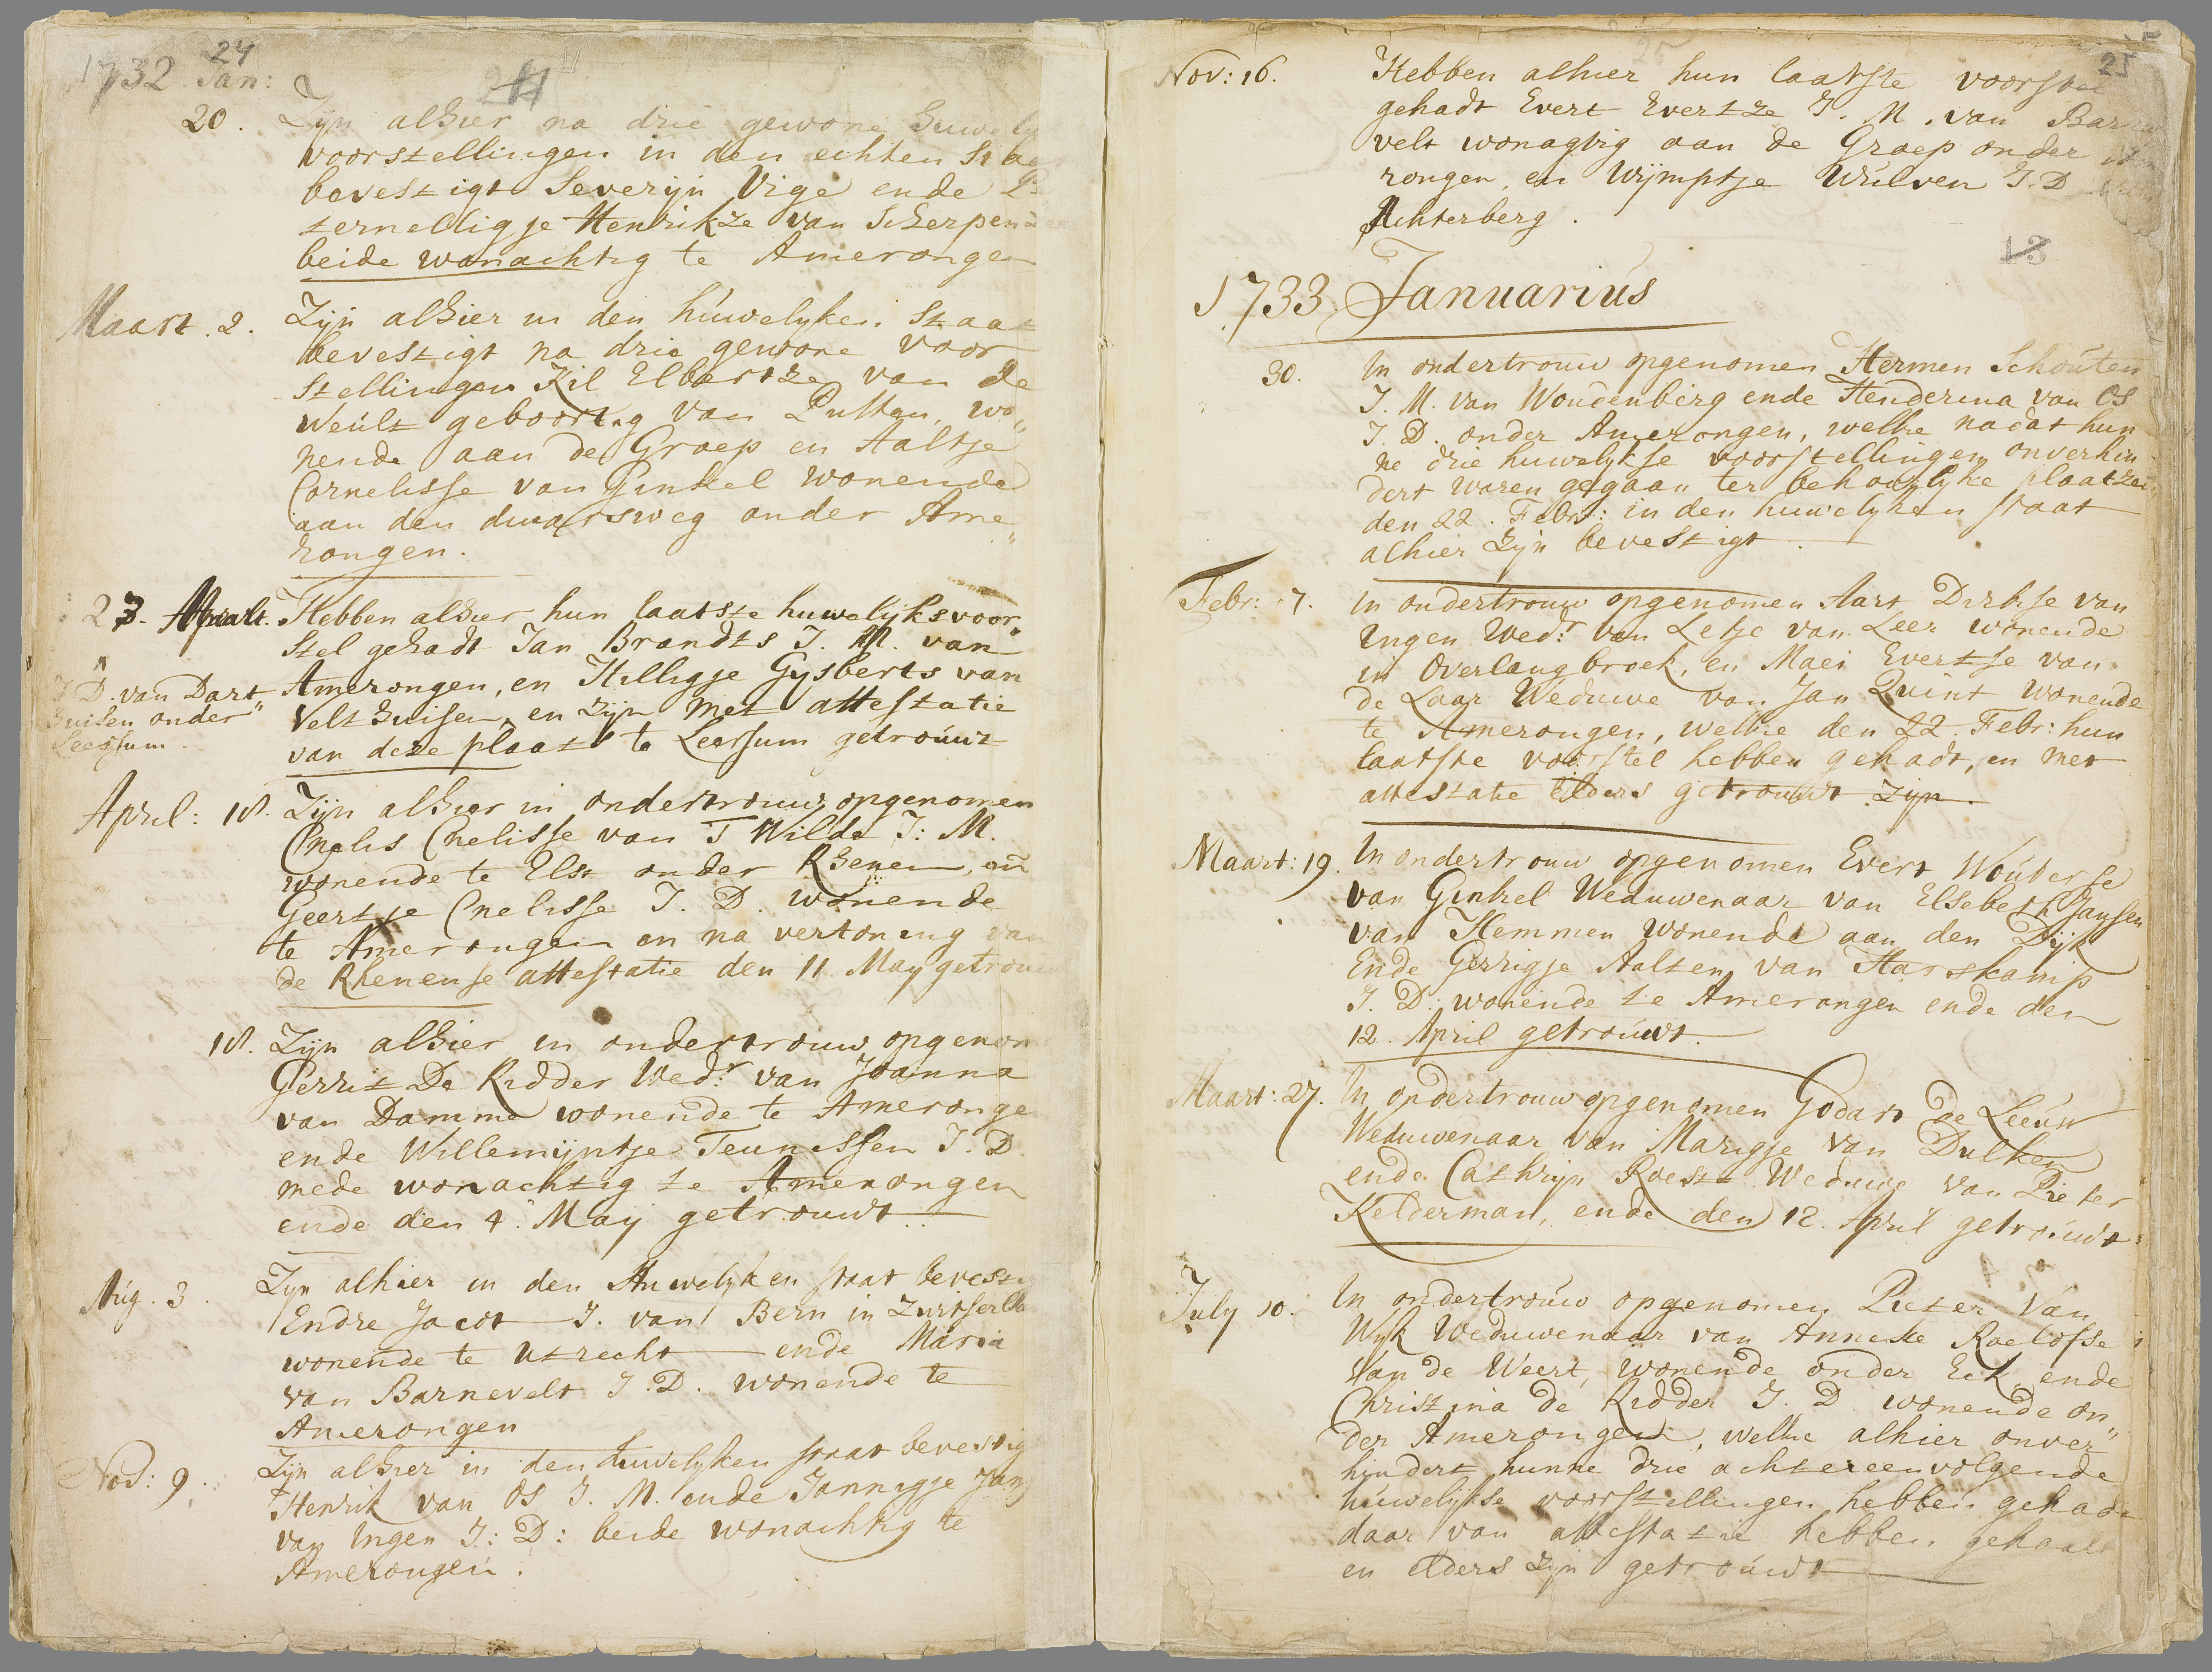 24
1732 Jan:
20. Zijn alhier na drie gewone huwely
voorstellingen in den echten Staa
bevestigt Severijn Vige ende
ternelligje Henrikze van Scherpen
beide wonachtig te Amerongen
Maart. 2. Zijn alhier in den húwelyken Staat
bevestigt na drie gewone voor
stellingen Kil Elbertze van de
Weúlt geboortig van Putten, wo„
nende aan de Groep en Aaltje
Cornelisse van Ginkel wonende
aan den dwarsweg onder Ame„
rongen.
23. Maart. Hebben alhier hun laatste huwelijksvoor„
stel gehadt Jan Brandts J. M. van
Amerongen, en Hilligje Gysberts van
J D. van Dart„
huisen onder
Leersum.
Velthuisen, en zijn met attestatie
van deze plaats te Leersum getroúwt
April: 18. Zijn alhier in ondertrouw opgenomen
Cnelis Cnelisse van T Wilde J: M.
wonende te Elst onder Rhenen, en
Geertje Cnelisse J. D. wonende
te Amerongen en na vertoning van
de Rhenense attestatie den 11 May getrou
18. Zijn alhier in ondertrouw opgenom
Gerrit De Ridder Wed:r van Joanna
van Damme wonende te Ameronge
ende Willemijntje Teunissen J. D.
mede wonachtig te Amerongen
ende den 4. Maij getrouwt.
Aúg. 3. Zyn alhier in den Huwelyken staat bevesti
Endre Jacot J. van Bern in Zwitserla
wonende te Utrecht ende Maria
van Barnevelt J. D. wonende te
Amerongen
Nov: 9. Zijn alhier in den huwelyken staat bevestig
Henrik van Os J. M. ende Jannigje Jans
van Ingen J: D: beide wonachtig te
Amerongen.
25
Nov: 16. Hebben alhier hun laatste voorstel
gehadt Evert Evertze J. M. van Barne
velt wonagtig aan de Groep onder
rongen, en Wijmptje Wulven J. D.
Achterberg.
13
1733 Januariús
30. In ondertrouw opgenomen Hermen Schoúten
J. M. van Woudenberg ende Henderina van Os
J. D. onder Amerongen, welke nadat hun
ne drie huwelykse voorstellingen onverhin
dert waren gegaan ter behoorlyke plaatzen
den 22. Febr: in den huwelyken staat
alhier zijn bevestigt.
Febr: 7. In ondertrouw opgenomen Aart Dirkse van
Ingen Wed:r van Letje van Leer wonende
in Overlangbroek, en Maei Evertse van
de Laar Weduwe van Jan Quint wonende
te Amerongen, welke den 22. Febr: hun
laatste voorstel hebben gehadt, en met
attestatie elders getrouwt zijn.
Maart: 19. In ondertrouw opgenomen Evert Woúterse
van Ginkel Weduwenaar van Elsebeth Jansen
van Hemmen wonende aan den Dijk
Ende Gerrigje Aalten van Harskamp
J. D. wonende te Amerongen ende den
12. April getroúwt.
Maart: 27. In ondertrouw opgenomen Godart de Leeúw
Weduwenaar van Marigje van Dulken
ende Cathrijn Roest Weduwe van Pieter
Kelderman, ende den 12. April getroúwt.
July 10. In ondertroúw opgenomen Pieter Van
Wyk Weduwenaar van Anneke Roelofse
van de Weert, wonende onder Eck ende
Christina de Ridder J. D. wonende on„
der Amerongen, welke alhier onver„
hindert hunne drie achtereenvolgende
húwelijkse voorstellingen hebben gehadt
daar van attestatie hebben gehaalt
en elders zijn getroúwt